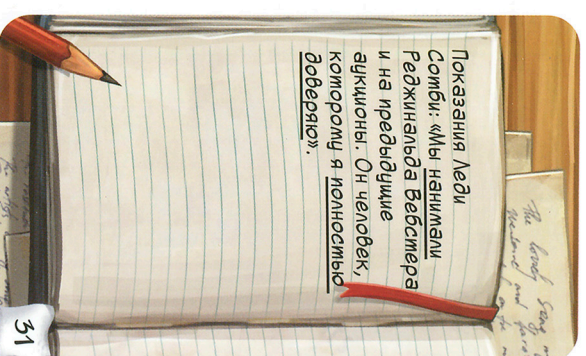 Показания Леди
Сотби: «Мы нанимали
Реджинальда Вебстера
и на предыдущие
аукционы. Он человек,
которому я полностью
доверяю».
31